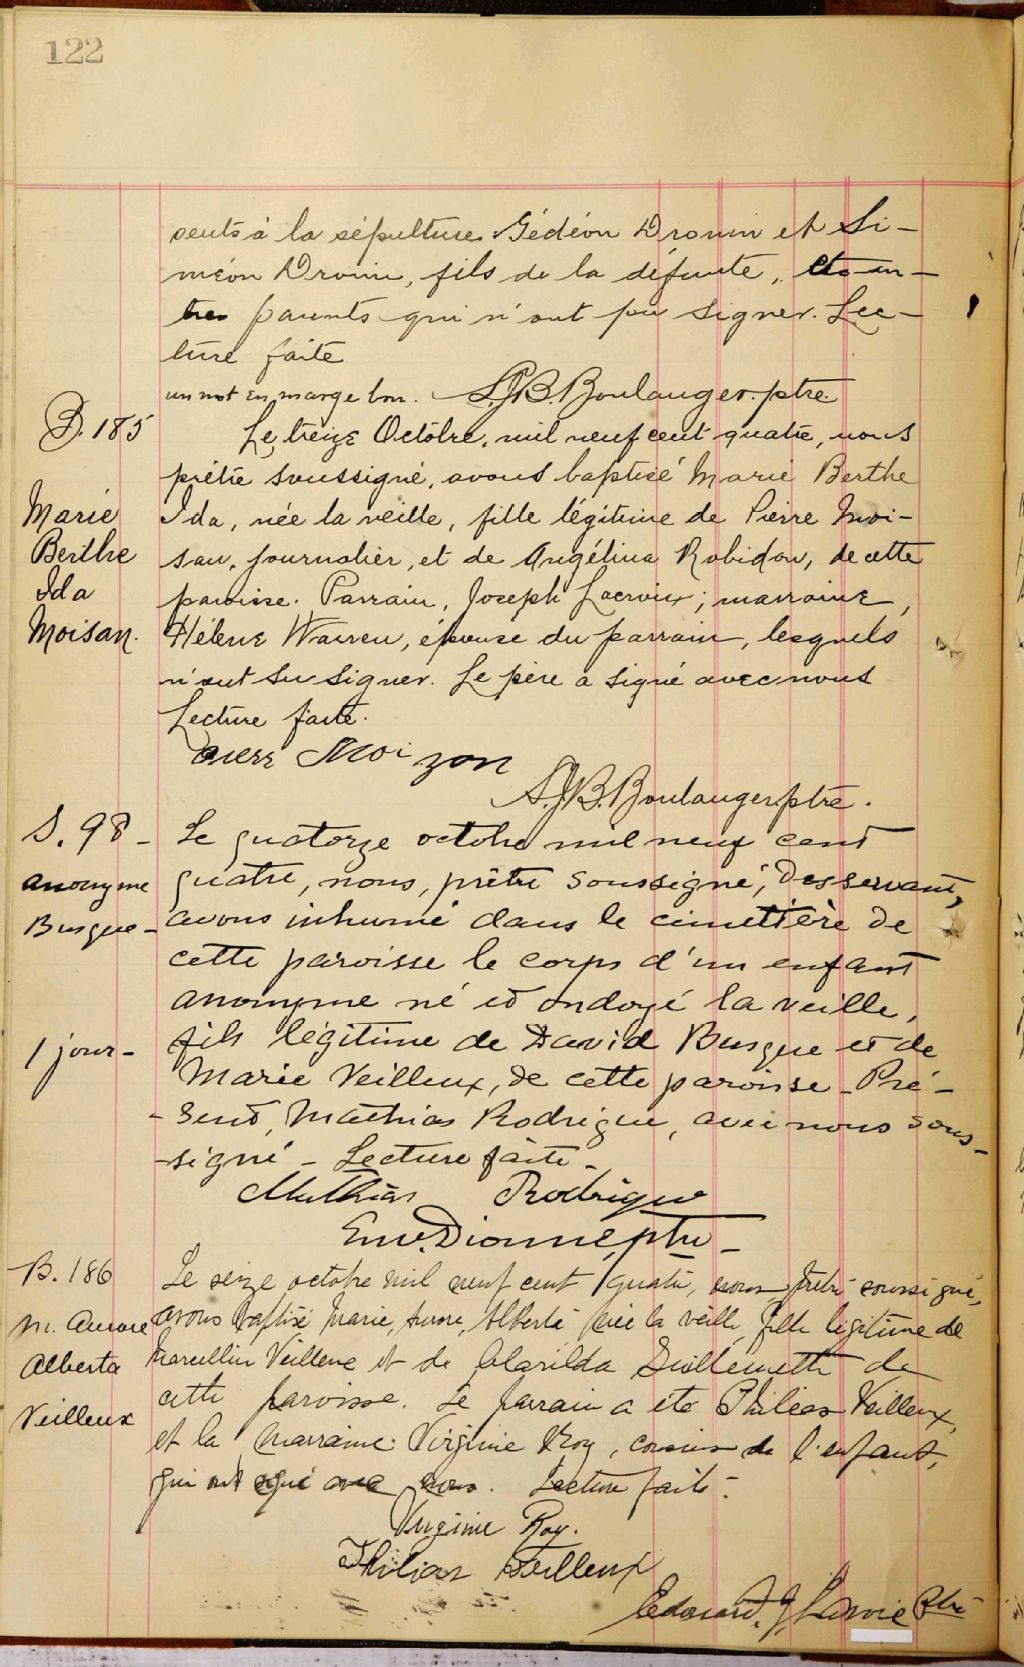 122
sents à la sépulture Gédéon Drouin et Si-
méon Drouin, fils de la défunte,
parents qui n'ont pu signer. Lec-
ture faite
un mot en marge bon. S.J.B. Boulanger. ptre.
B. 185
Le treize Octobre, mil neuf cent quatre, nous
prêtre soussigné, avons baptisé Marie Berthe
Marie
Berthe
Ida
Moisan.
Ida, née la veille, fille légitime de Pierre Moi-
san, journalier, et de Angélina Robidou, de cette
paroisse. Parrain, Joseph Lacroix; marraine,
Hélène Warren, épouse du parrain, lesquels
n'ont su signer. Le père a signé avec nous
Lecture faite.
Pierr Moizon
S.J.B. Boulanger ptre.
S. 98 -
anonyme
Busque -
1 jour -
Le quatorze octobre mil neuf cent
quatre, nous, prêtre soussigné, desservant,
avons inhumé dans le cimetière de
cette paroisse le corps d'un enfant
anonyme né et ondoyé la veille,
fils légitime de David Busque et de
Marie Veilleux, de cette paroisse - Pré-
- sent, Mathias Rodrigue, avec nous sous-
- signé - Lecture faite -
Mathias Rodrigue
Em. Dionne, ptre -
B. 186
M. Aurore
Alberta
Veilleux
Le seize octobre mil neuf cent quatre, nous prêtre soussigné,
avons baptisé Marie, Aurore, Alberta née la veille, fille légitime de
Marcellin Veilleux et de Clarilda Guillemette de
cette paroisse. Le parrain a été Philéas Veilleux,
et la marraine Virginie Roy, cousins de l'enfant,
qui ont signé avec nous. Lecture faite.-
Virginie Roy.
Philias Veilleux
Edouard. J. Lavoie Ptre